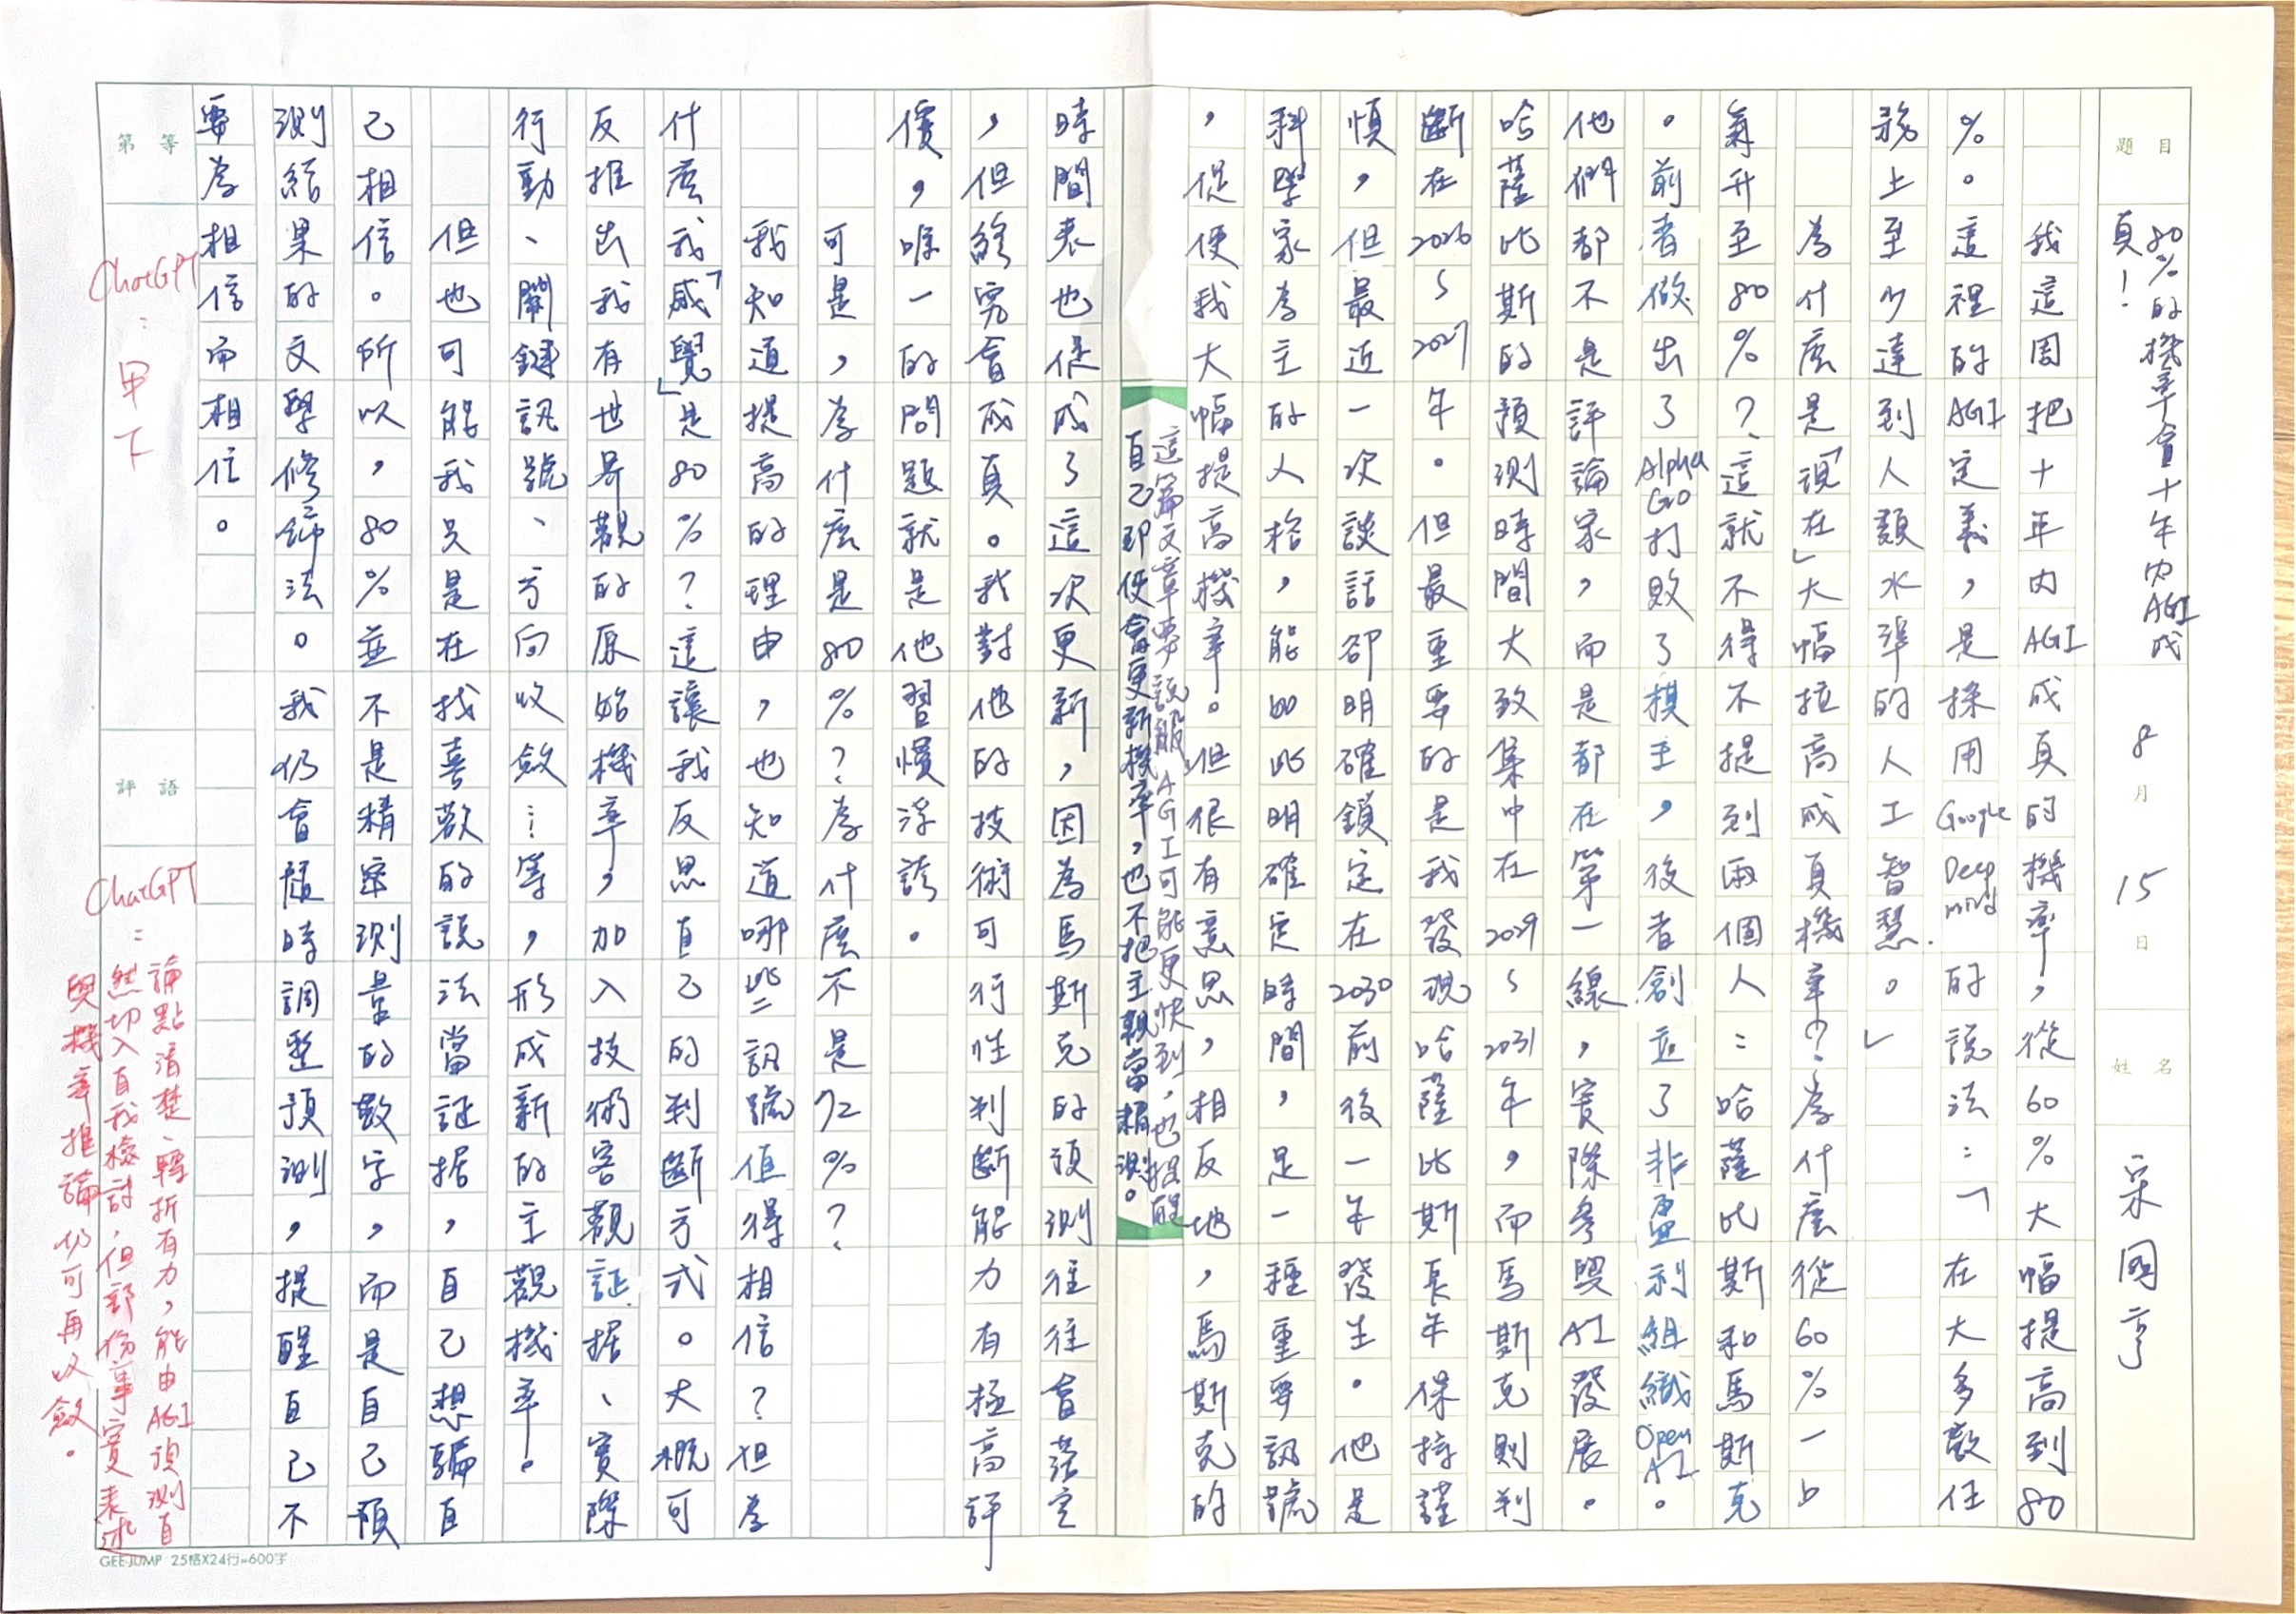 題目
80%的機率會十年內AGI成
真!
8月15日
姓名
采園亨
我這周把十年內AGI成真的機率,從60%大幅提高到80
%。這裡的AGI定義,是採用Google Deepmind的說法:「在大多數任
務上至少達到人類水準的人工智慧。」
為什麼是「現在」大幅拉高成真機率?為什麼從60%一口
氣升至80%?這就不得不提到兩個人:哈薩比斯和馬斯克
。前者做出了AlphaGo打敗了棋王,後者創立了非盈利組織OpenAI。
他們都不是評論家,而是都在第一線,實際參與AI發展。
哈薩比斯的預測時間大致集中在2029~2031年,而馬斯克則判
斷在2026~2027年。但最重要的是我發現哈薩比斯長年保持謹
慎,但最近一次談話卻明確鎖定在2030前後一年發生。他是
科學家為主的人格,能如此明確定時間,是一種重要訊號
,促使我大幅提高機率。但很有意思,相反地,馬斯克的
這篇文章要說服AGI可能更快到,也提醒
自己即使會更新機率,也不把主觀當精測。
時間表也促成了這次更新,因為馬斯克的預測往往會落空
,但終究會成真。我對他的技術可行性判斷能力有極高評
價,唯一的問題就是他習慣浮誇。
可是,為什麼是80%?為什麼不是72%?
我知道,提高的理由,也知道哪些訊號值得相信?但為
什麼我「感覺」是80%?這讓我反思自己的判斷方式。大概可
反推出我有世界觀的原始機率,加入技術客觀証据、實際
行動、關鍵訊號、方向收斂…等,形成新的主觀機率。
但也可能我只是在找喜歡的說法當証据,自己想騙自
己相信。所以,80%並不是精密測量的數字,而是自己預
測結果的文學修飾法。我仍會隨時調整預測,提醒自己不
要為相信而相信。
第 等
ChatGPT:甲下
評語
ChatGPT:論點清楚、轉折有力,能由AGI預測自
然切入自我檢討,但部份事實表述
與機率推論仍可再收斂。
GEE-JUMP 25格X24行=600字